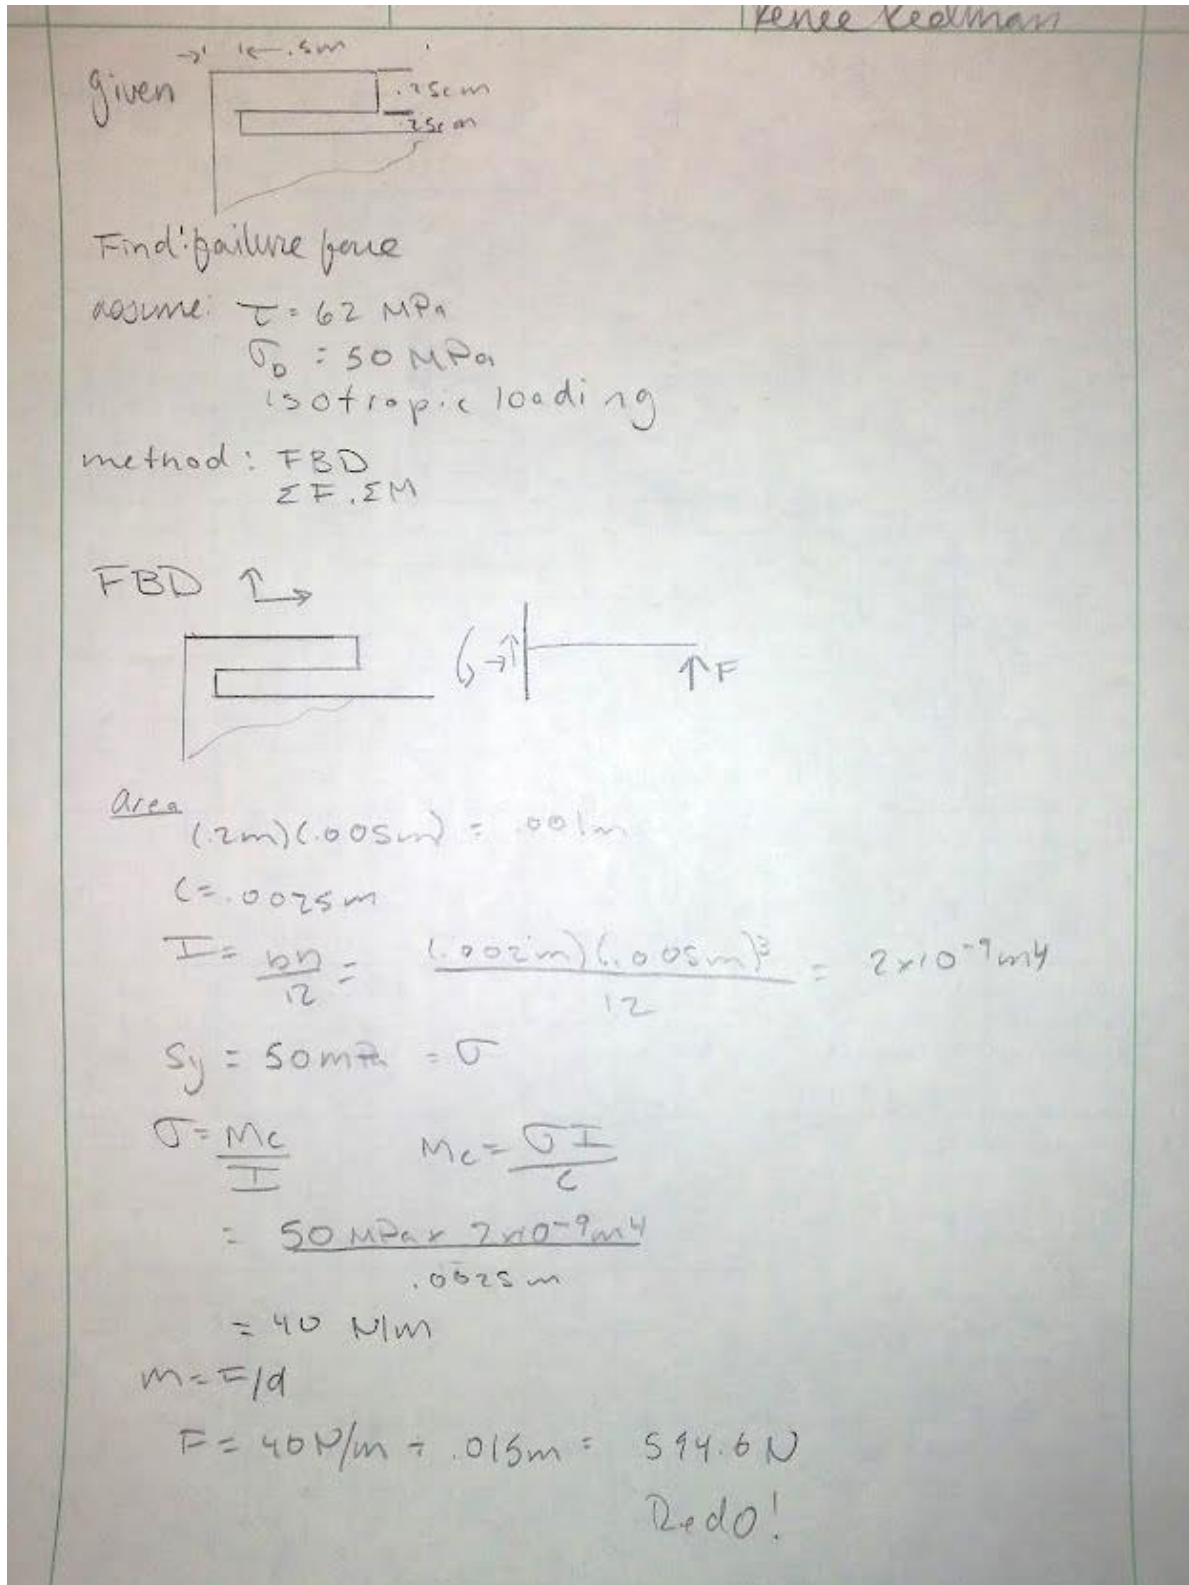 Renee Redman
.5m
given
.25cm
.25cm
Find: failure force
assume: τ = 62 MPa
σb = 50 MPa
isotropic loading
method: FBD
ΣF, ΣM
FBD
F
area
(.2m)(.005m) = .001m
C = .0025m
I = bh/12 = (.002m)(.005m)³/12 = 2x10⁻⁹m4
Sy = 50mPa = σ
σ = Mc/I Mc = σI/c
= 50 MPa x 2x10⁻⁹m4/.0025m
= 40 N/m
m = F/d
F = 40N/m ÷ .015m = 594.6 N
Redo!